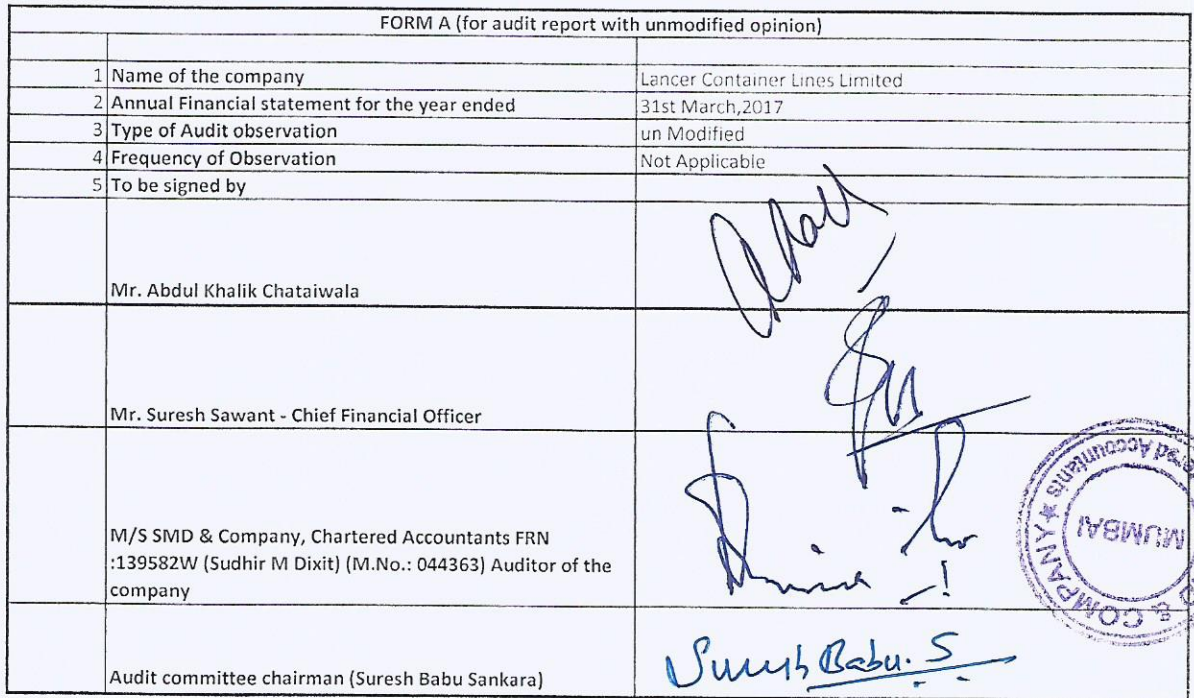 FORM A (for audit report with unmodified opinion)
1 Name of the company Lancer Container Lines Limited
2 Annual Financial statement for the year ended 31st March,2017
3 Type of Audit observation un Modified
4 Frequency of Observation Not Applicable
5 To be signed by
Mr. Abdul Khalik Chataiwala
Mr. Suresh Sawant - Chief Financial Officer
M/S SMD & Company, Chartered Accountants FRN
:139582W (Sudhir M Dixit) (M.No.: 044363) Auditor of the
company
& COMPANY ★
Accountants
MUMBAI
Audit committee chairman (Suresh Babu Sankara) Suresh Babu. S